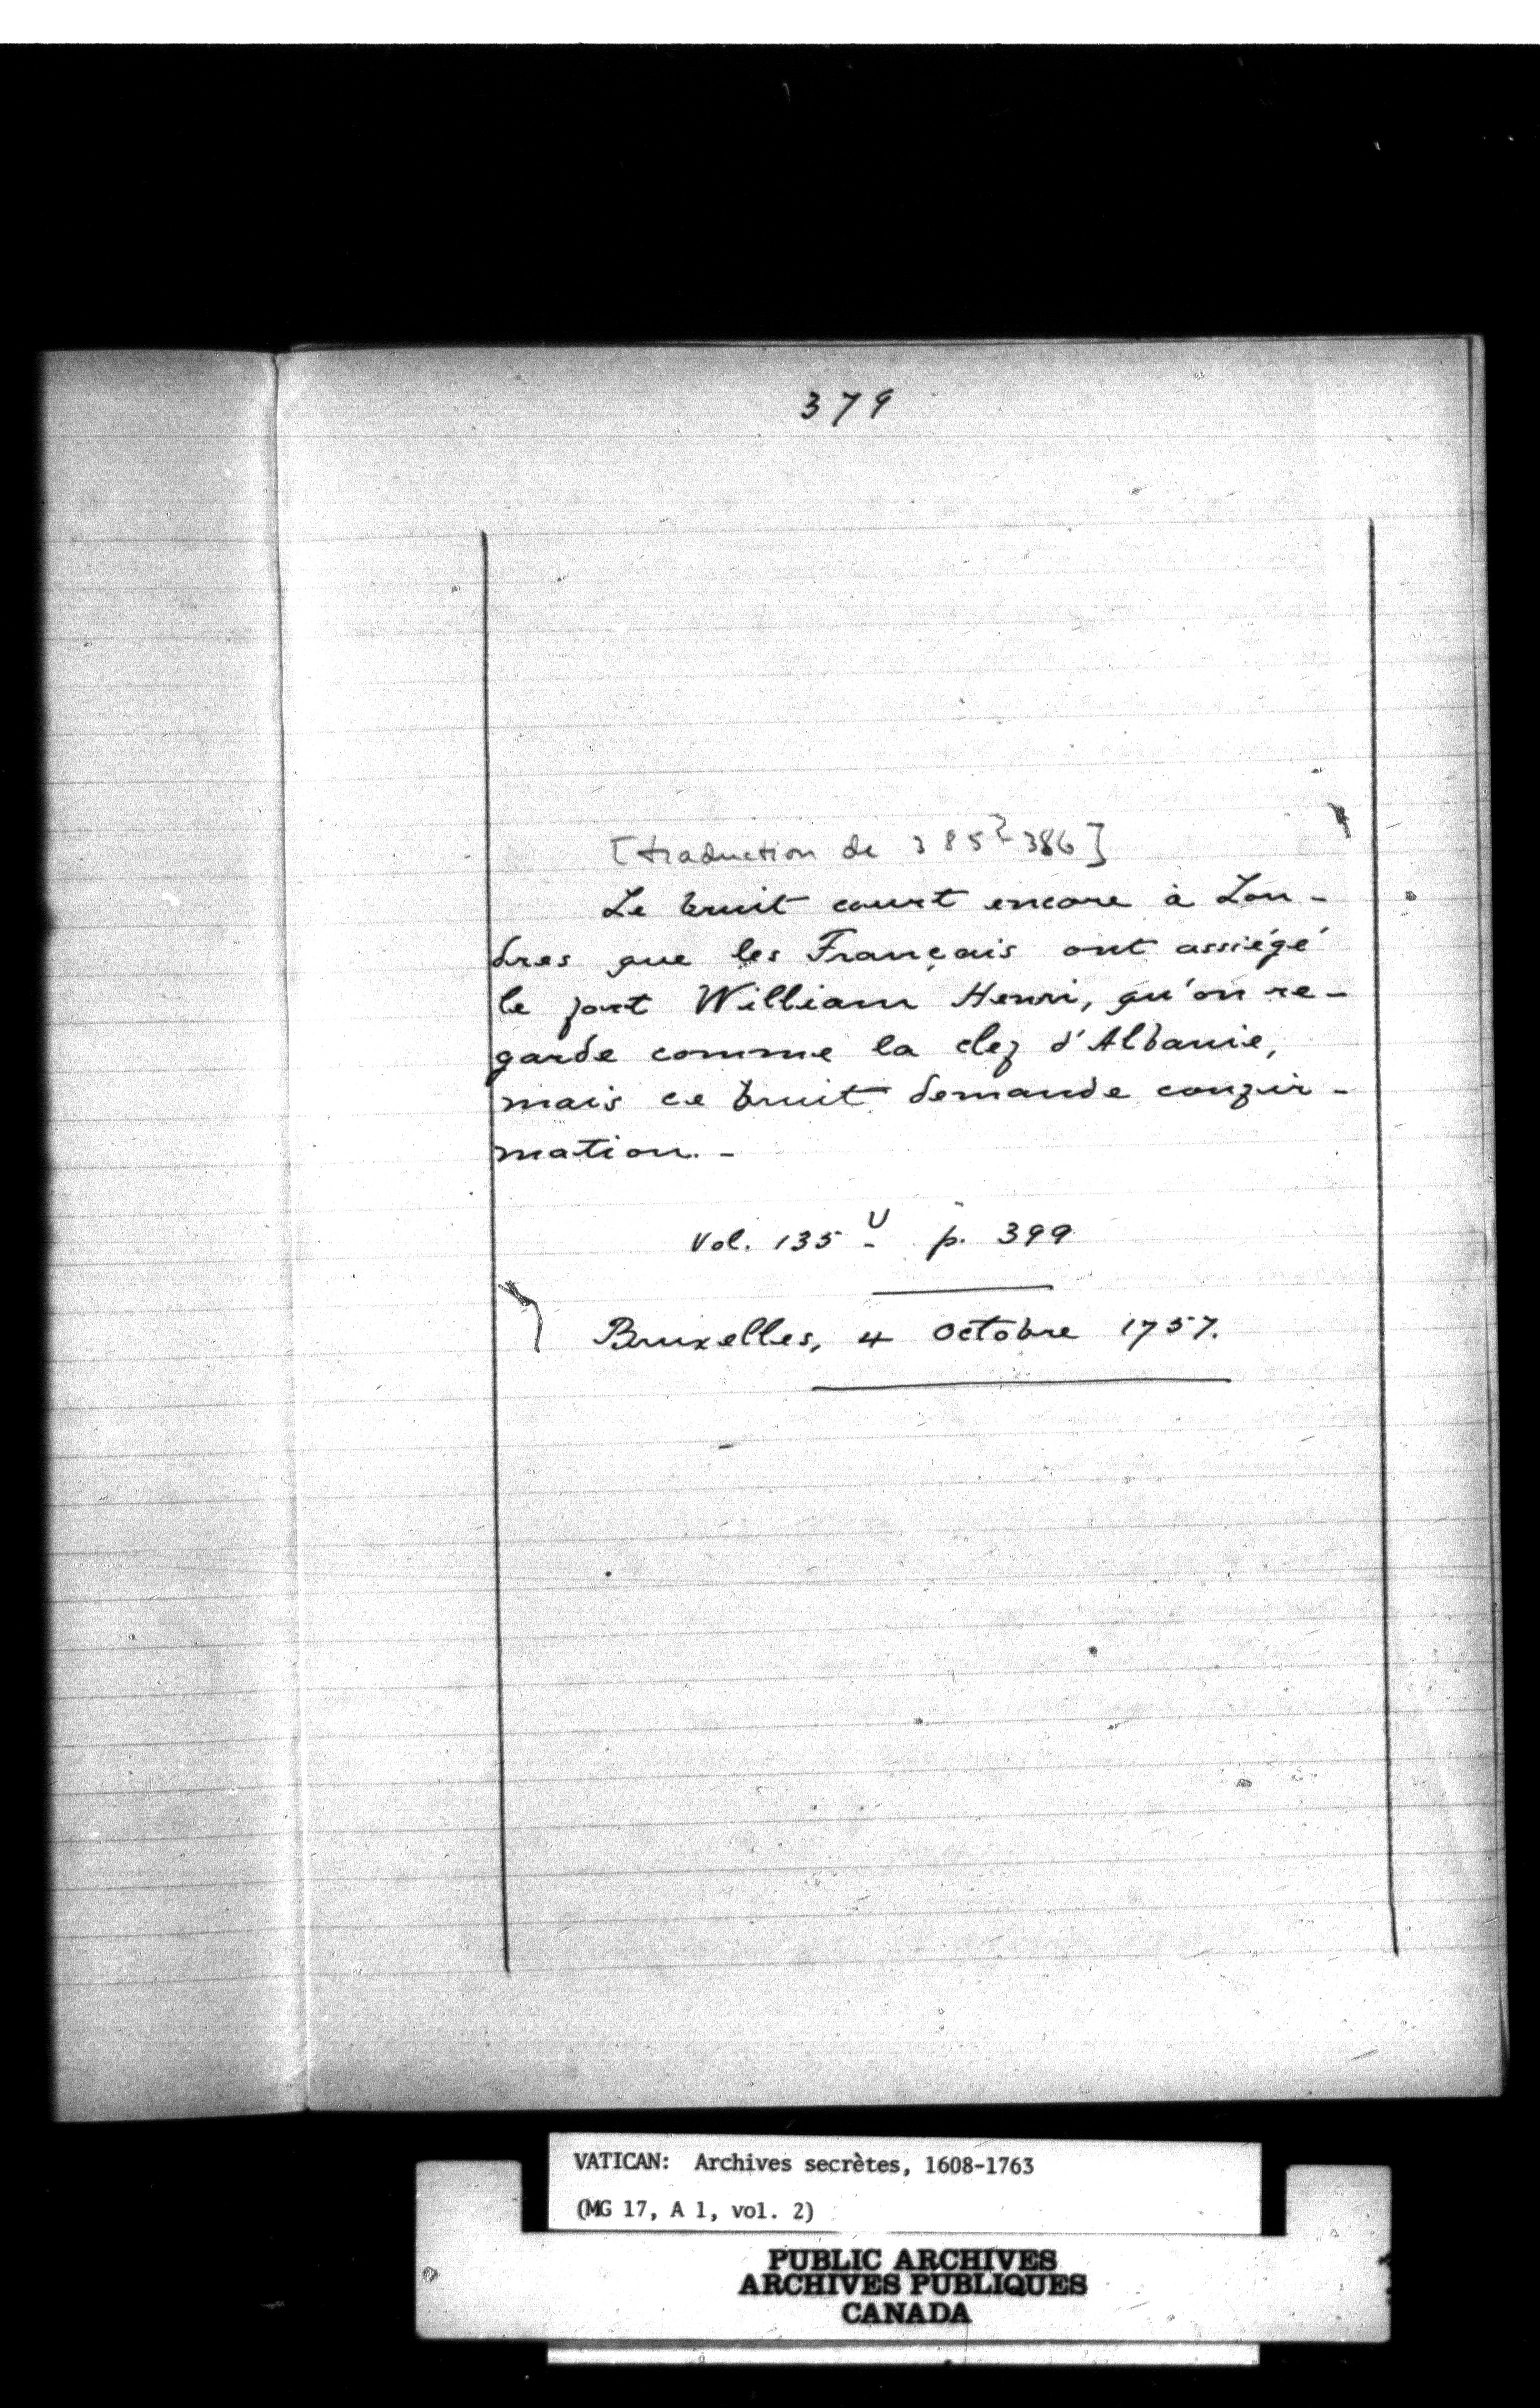 379
[traduction de 385?-386]
Le bruit court encore à Lon-
dres que les Français ont assiégé
le fort William Henri, qu'on re-
garde comme la clef d'Albanie,
mais ce bruit demande confir-
mation. -
Vol. 135 U p. 399
Bruxelles, 4 Octobre 1757.
VATICAN: Archives secrètes, 1608-1763
(MG 17, A 1, vol. 2)
PUBLIC ARCHIVES
ARCHIVES PUBLIQUES
CANADA